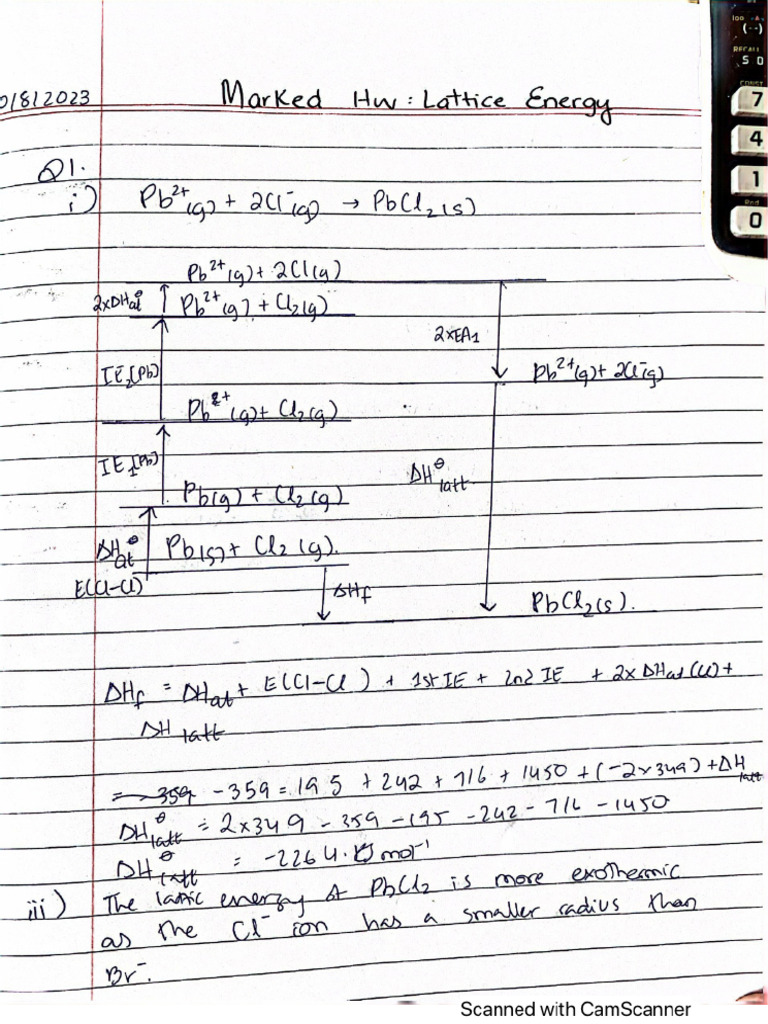 0/8/2023
Marked Hw: Lattice Energy
Q1.
i) Pb²⁺(g) + 2Cl⁻(g) → PbCl₂(s)
Pb²⁺(g) + 2Cl(g)
2xΔHat⦵ Pb²⁺(g) + Cl₂(g)
2xEA₁
IE₂(Pb) Pb²⁺(g) + 2Cl⁻(g)
Pb⁺(g) + Cl₂(g)
IE₁(Pb)
ΔH⦵latt
Pb(g) + Cl₂(g)
ΔHat⦵ Pb(s) + Cl₂(g).
E(Cl-Cl)
ΔHf PbCl₂(s).
ΔHf = ΔHat + E(Cl-Cl) + 1st IE + 2nd IE + 2xΔHat(Cl) +
ΔHlatt
= 359 -359 = 195 + 242 + 716 + 1450 + (-2x349) + ΔHlatt
ΔH⦵latt = 2x349 - 359 - 195 - 242 - 716 - 1450
ΔH⦵latt = -2264 kJ mol⁻¹
iii) The lattic energy of PbCl₂ is more exothermic
as the Cl⁻ ion has a smaller radius than
Br⁻.
100 -A-
(--)
RECALL
5 0
CONST
7
4
1
Rnd
0
Scanned with CamScanner